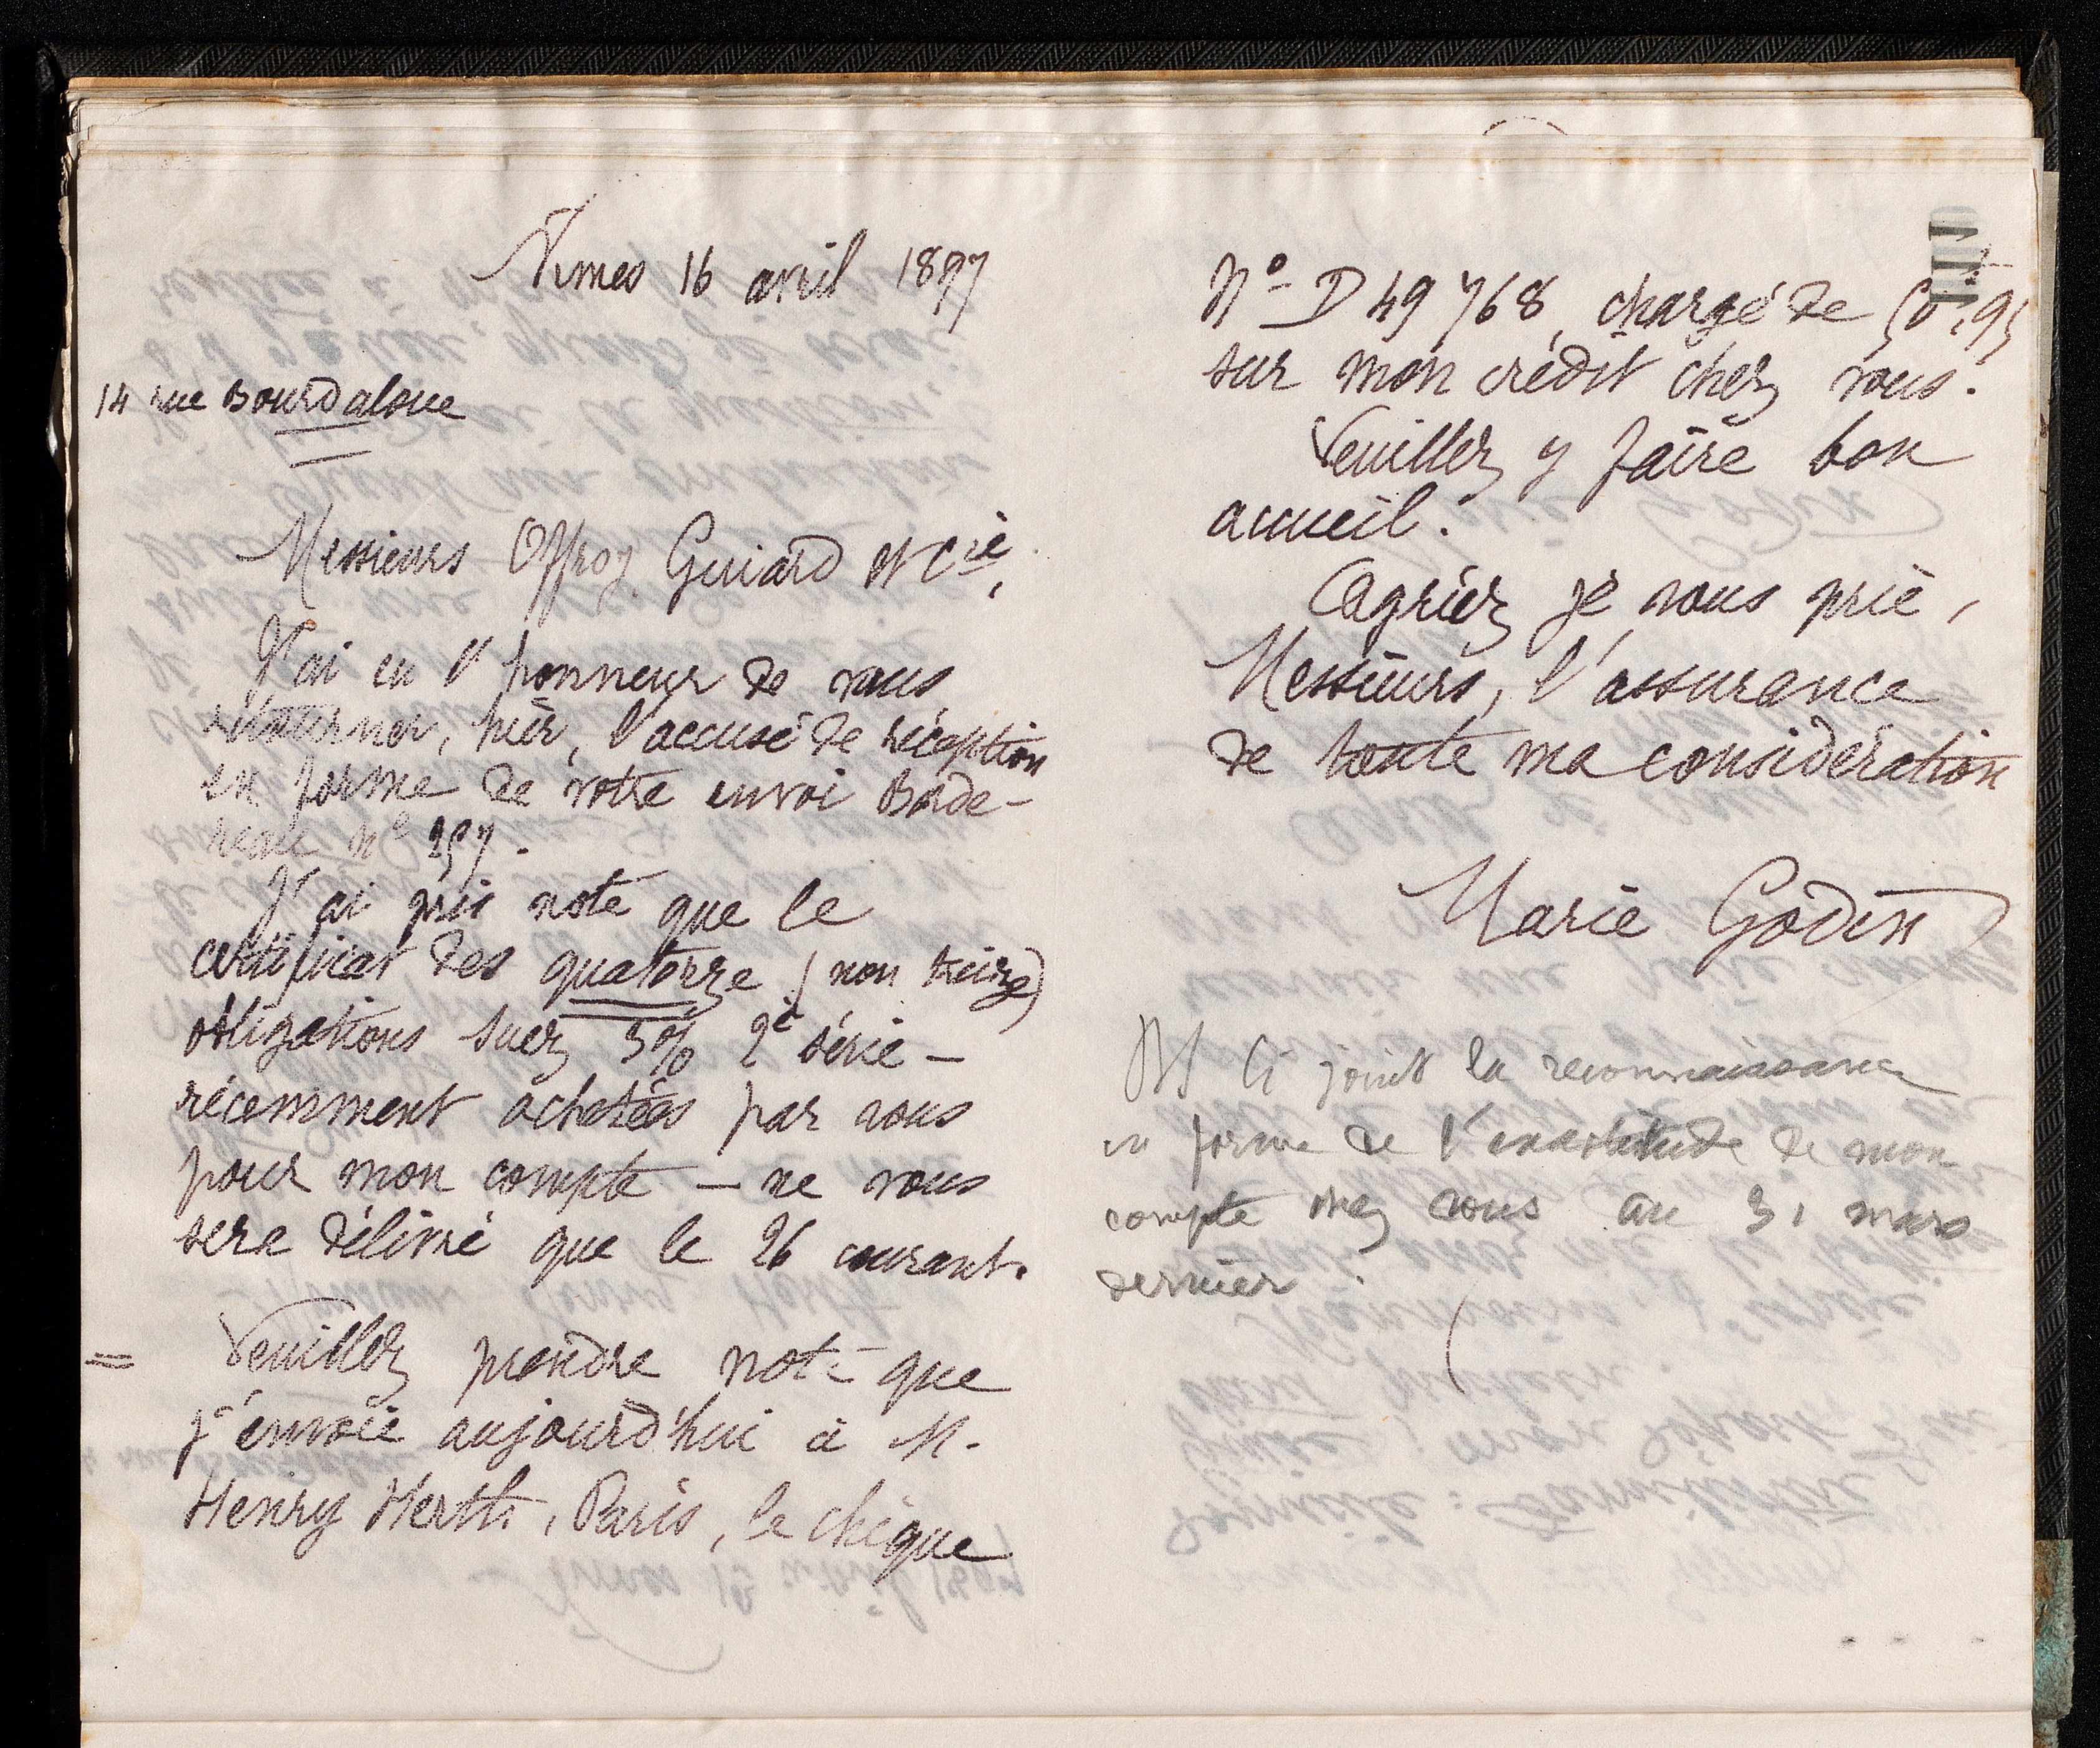 Nîmes 16 avril 1897
14 rue Bourdaloue
Messieurs Offroy Guiard et Cie,
J'ai eu l'honneur de vous
retourner, hier, l'accusé de réception
en forme de votre envoi Borde-
reau n° 257.
J'ai pris note que le
certificat des quatorze (non treize)
obligations Suez 3% 2e série –
récemment achetées par vous
pour mon compte – ne vous
sera délivré que le 26 courant.
= Veuillez prendre note que
j'envoie aujourd'hui à M.
Henry Herth, Paris, le chèque
N° D 49768, chargé de 50,95
sur mon crédit chez vous.
Veuillez y faire bon
accueil.
Agréez je vous prie,
Messieurs, l'assurance
de toute ma considération
Marie Godin
PS Ci joint la reconnaissance
en forme de l'exactitude de mon
compte chez vous au 31 mars
dernier.